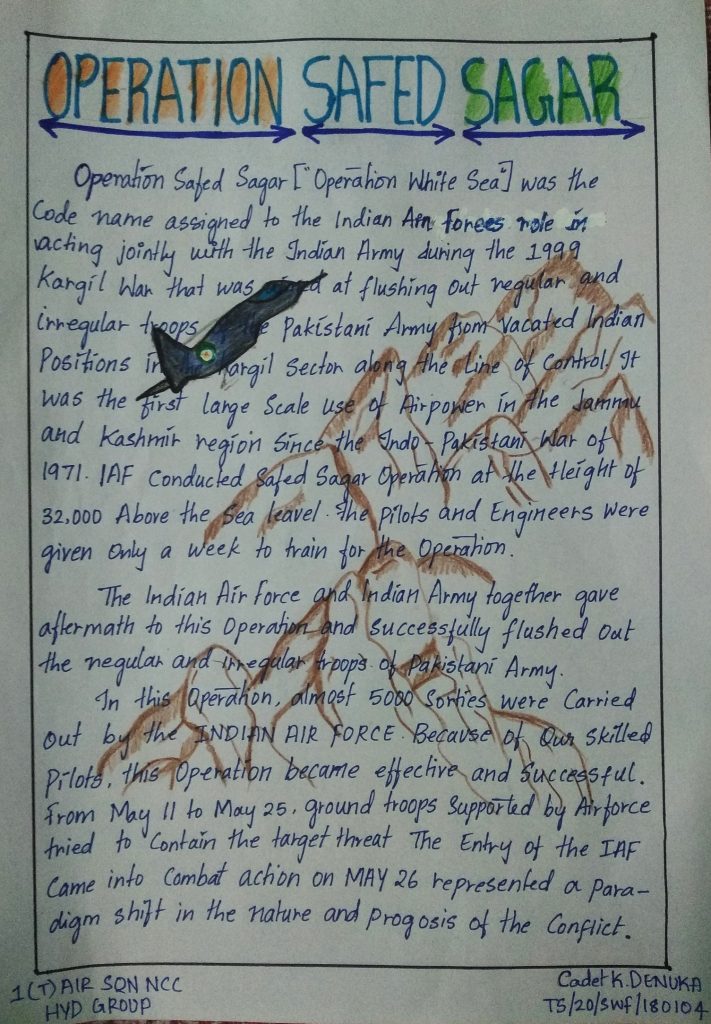 OPERATION SAFED SAGAR
Operation Safed Sagar ["Operation White Sea"] was the
Code name assigned to the Indian Air Forces role in
acting jointly with the Indian Army during the 1999
Kargil War that was aimed at flushing out regular and
irregular troops of the Pakistani Army from Vacated Indian
Positions in the Kargil Sector along the Line of Control. It
was the first large Scale use of Airpower in the Jammu
and Kashmir region Since the Indo-Pakistani War of
1971. IAF Conducted Safed Sagar Operation at the Height of
32,000 Above the Sea leavel. The Pilots and Engineers were
given Only a week to train for the Operation.
The Indian Air Force and Indian Army together gave
aftermath to this Operation and Successfully flushed Out
the regular and irregular troops of Pakistani Army.
In this Operation, almost 5000 Sorties were Carried
Out by the INDIAN AIR FORCE. Because of Our Skilled
Pilots, this Operation became effective and Successful.
From May 11 to May 25, ground troops Supported by Airforce
tried to Contain the target threat The Entry of the IAF
Came into Combat action on MAY 26 represented a Para-
digm shift in the nature and Progosis of the Conflict.
1(T) AIR SQN NCC
HYD GROUP
Cadet K. DENUKA
TS/20/SWF/180104